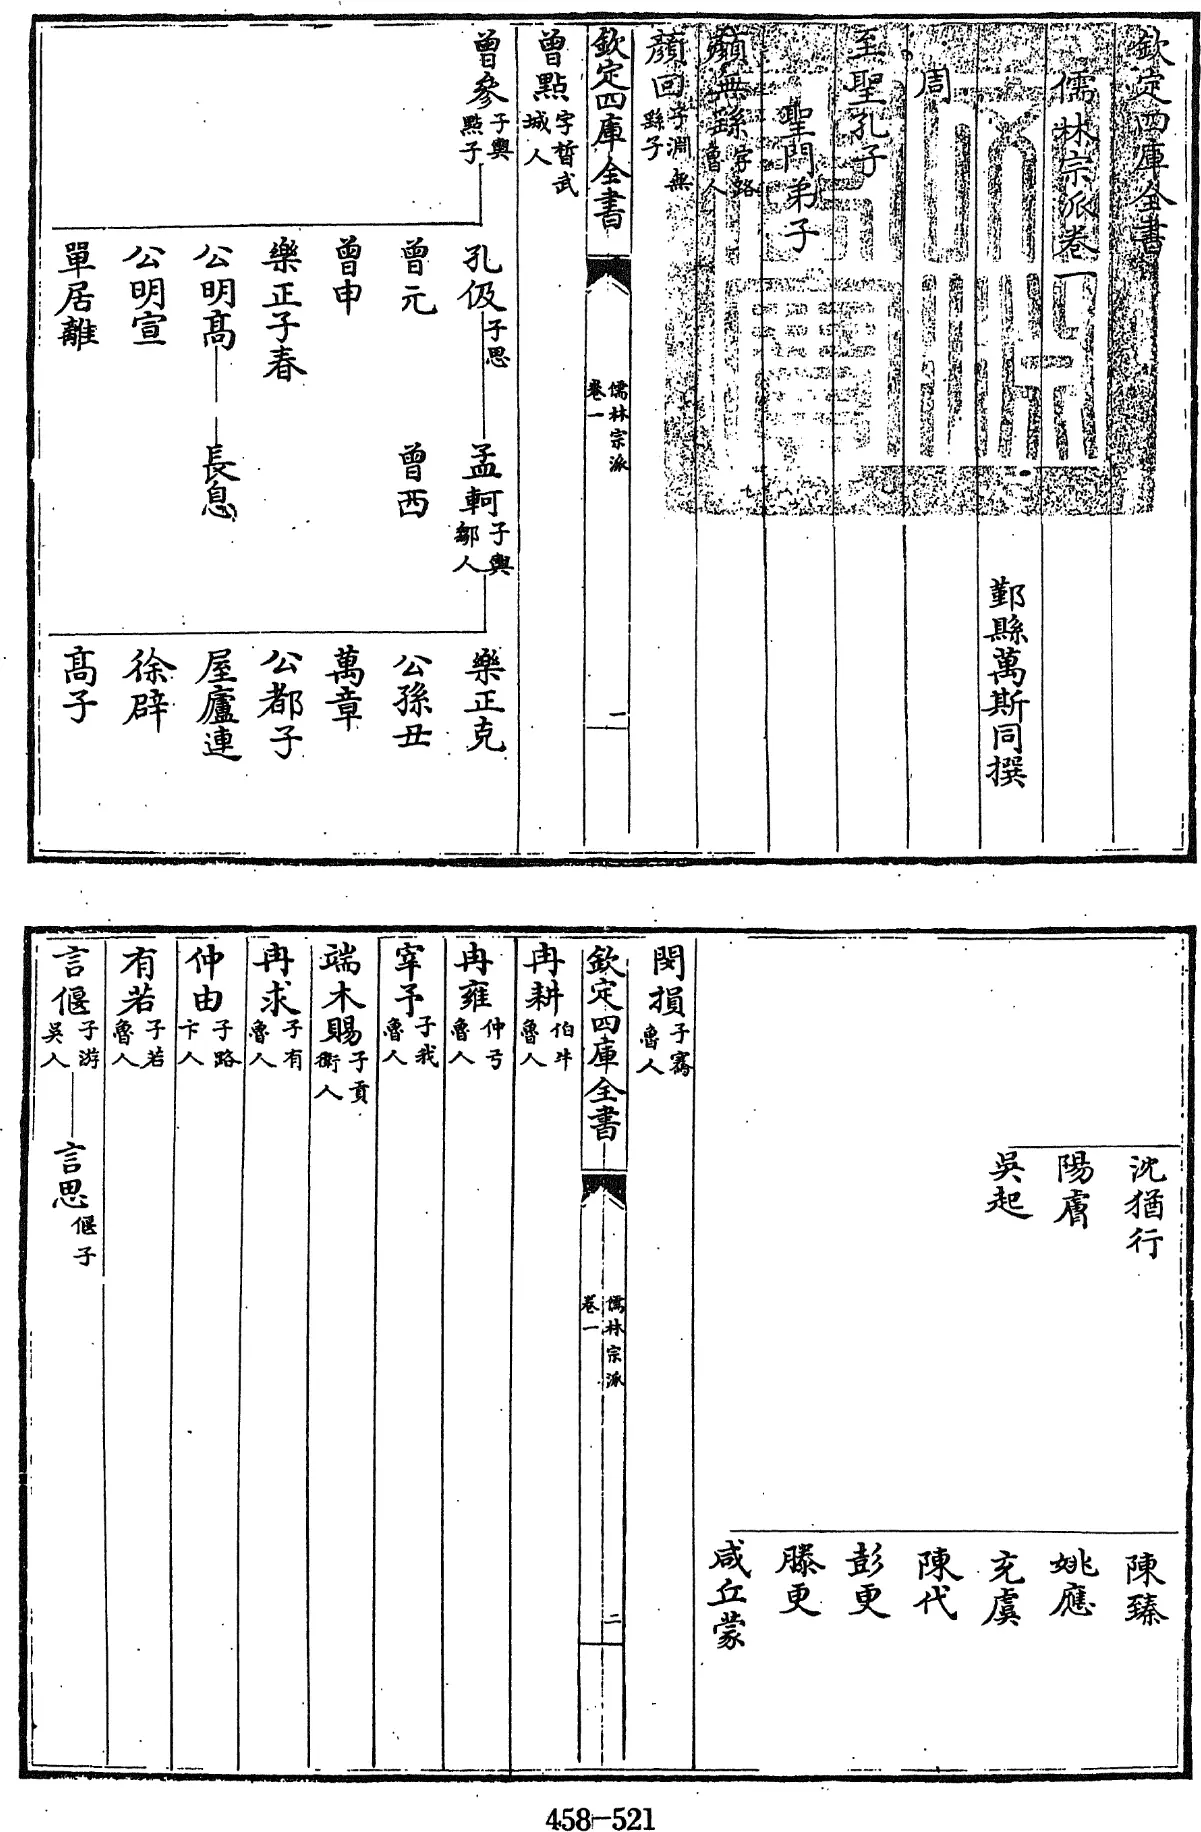 欽定四庫全書
儒林宗派卷一
鄞縣萬斯同撰
周
至聖孔子
聖門弟子
顔無繇字路魯人
顔回字淵無繇子
欽定四庫全書
儒林宗派
卷一
一
曾點字晳武城人
曾參子輿點子
孔伋子思
孟軻子輿鄒人
樂正克
曾元
曾西
公孫丑
曾申
萬章
樂正子春
公都子
公明高
長息
屋廬連
公明宣
徐辟
單居離
高子
沈猶行
陳臻
陽膚
姚應
吳起
充虞
陳代
彭更
滕更
咸丘蒙
閔損子騫魯人
欽定四庫全書
儒林宗派
卷一
二
冉耕伯牛魯人
冉雍仲弓魯人
宰予子我魯人
端木賜子貢衛人
冉求子有魯人
仲由子路卞人
有若子若魯人
言偃子游吳人
言思偃子
458-521